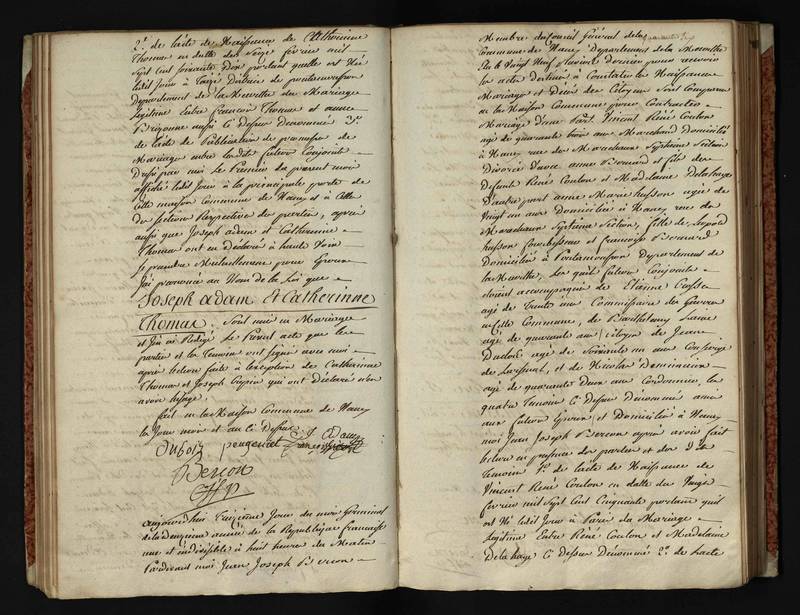 2°. de lacte de Naissance de Catherinne
Thomas en datte du Seize fevrie mil
Sept cent soixante Dix portant quelle est Née
ledit Jour à District de pontamousson
Departement de la Meurthe du Mariage
legitime Entre francois Thomas et anne
Bayonne aussi Ci Dessus Denommés 3°.
de lacte de Publication de promesse de
Mariage entre lesdits futurs Conjoints
Dressé par moi le Premier du present mois
affiché ledit Jour à la principale porte de
Cette maison Commune de Nancy et à Celle
de section Respective des parties, aprés
aussi que Joseph adam et Catherinne
Thomas ont eu Déclaré à haute Voix
Se prendre Mutuellement pour Epoux
J'ai prononcé au Nom de la Loi que
Joseph adam Et Catherinne
Thomas. Sont unis en Mariage
et J'ai Redigé le Present acte que les
parties et les Temoins ont signé avec moi
apres lecture faite à lexeption de Catherinne
Thomas et Joseph Crepin qui ont Déclaré n'en
avoir lusage.
fait en la Maison Commune de Nancy
les Jour mois et an Ci Dessus J Adam
Dubois peugenet
Bercon
aujourd'hui Treizieme Jour du mois Germinal
de la deuxieme annee de la Republique francaise
une et indivisible à huit heures du Matin
Pardevant moi Jean Joseph Bercon
Membre du Conseil Général de la
Commune de Nancy Departement de la Meurthe
Elu le Vingt Neuf Nivose Dernier pour recevoir
les actes Destinés à Constater les Naissances
Mariages et Décès des Citoyens Sont Comparus
en la Maison Commune pour Contracter
Mariage D'une Part, Vincent René Coulon
agé de quarante trois ans Marchand Domicilié
à Nancy rue des Marechaux Septieme Section
Divorcé D'avec anne Bernard et fils de
Defunts René Coulon et Madelaine Delahaye
D'autre part anne Marie husson agée de
Vingt un ans Domiciliée à Nancy rue des
Marechaux Septieme Section, fille de Leopold
husson Courbesseau et francoise Bernard
Domiciliés à Pontamousson Departement de
la Meurthe, lesquels futurs Conjoints
etoient accompagnés de Etienne
agé de Trente ans Commissaire des Guerres
en Cette Commune, de Barthelemy
agé de quarante ans Citoyen de Jeane
Duclos agé de Soixante un ans Concierge
de et de Nicolas
agé de quarante Deux ans Cordonnier, les
quatre Temoins Ci Dessus Denommés amis
aux futurs Epoux et Domiciliés à Nancy
moi Jean Joseph Bercon aprés avoir fait
lecture en presence des parties et des Dits
Temoins 1°. de lacte de Naissance de
Vincent René Coulon en datte du Vingt
fevrier mil Sept Cent Cinquante portant quil
est Né ledit Jour à Paris du Mariage
legitime Entre René Coulon et Madelaine
Delahaye Ci Dessus Denommés 2°. de lacte